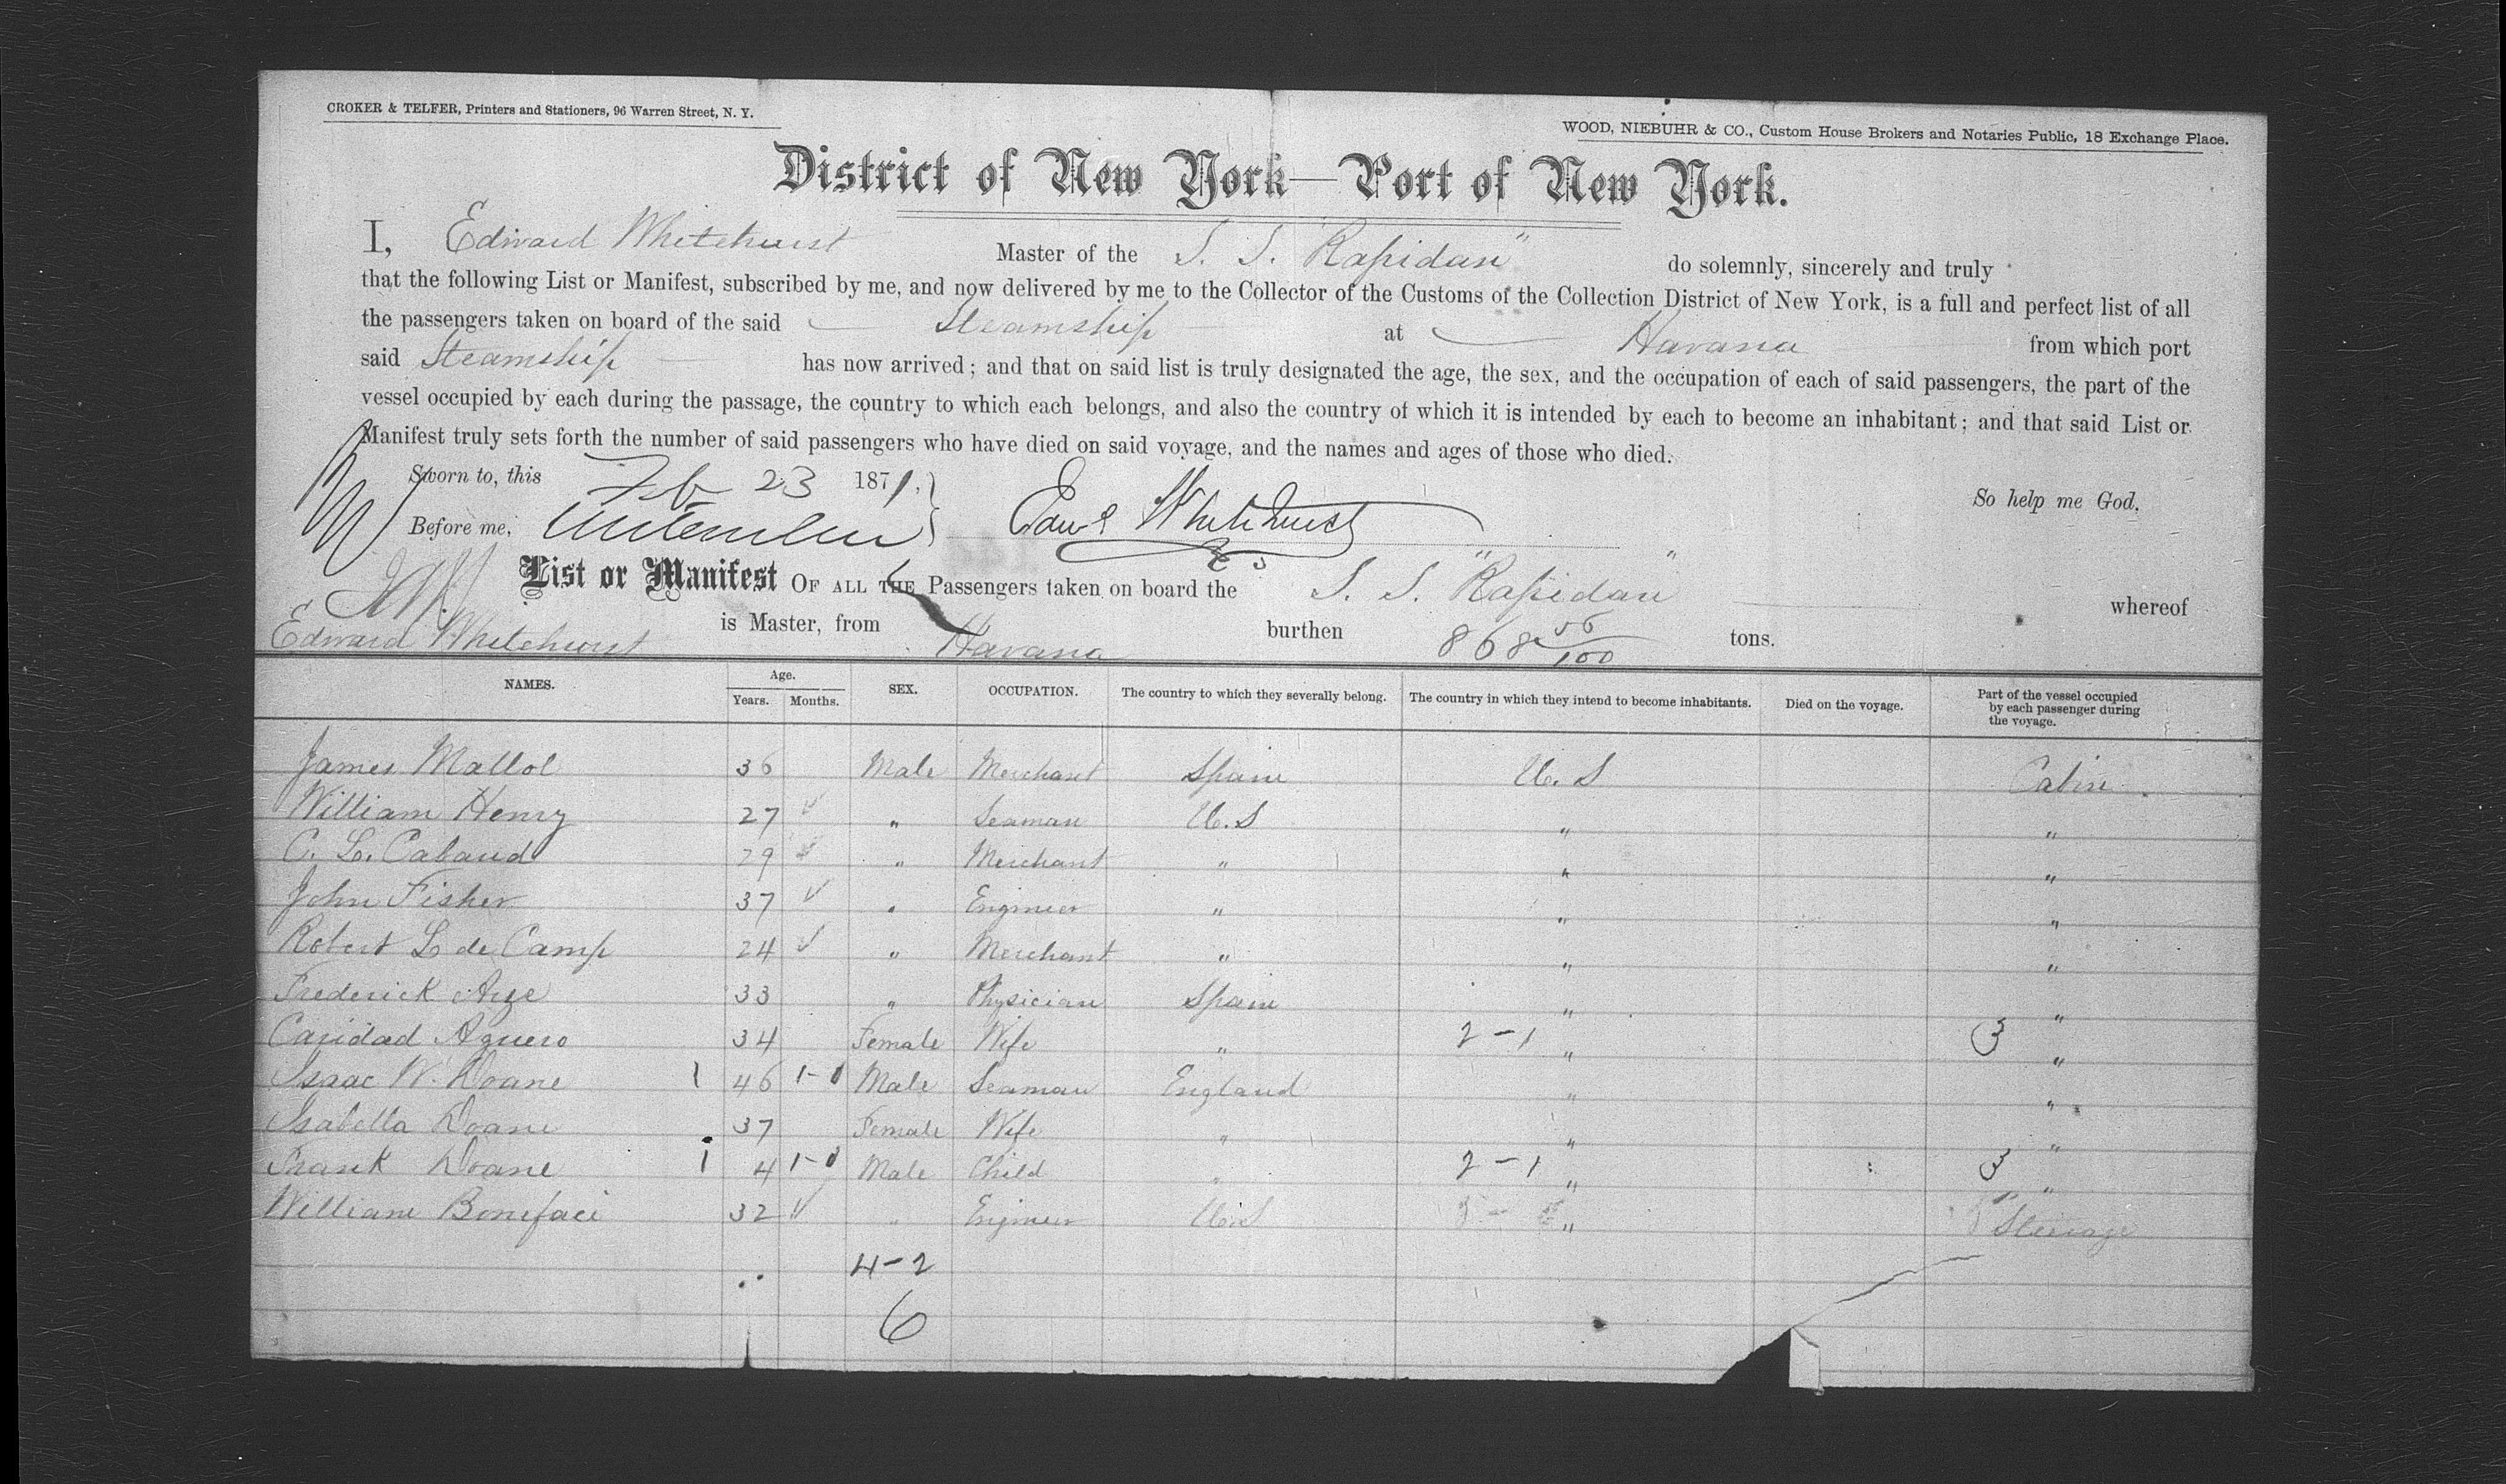 CROKER & TELFER, Printers and Stationers, 96 Warren Street, N. Y.
WOOD, NIEBUHR & CO., Custom House Brokers and Notaries Public, 18 Exchange Place.
District of New York—Port of New York.
I, Edward Whitehurst Master of the S. S. "Rapidan" do solemnly, sincerely and truly
that the following List or Manifest, subscribed by me, and now delivered by me to the Collector of the Customs of the Collection District of New York, is a full and perfect list of all
the passengers taken on board of the said Steamship at Havana from which port
said Steamship has now arrived; and that on said list is truly designated the age, the sex, and the occupation of each of said passengers, the part of the
vessel occupied by each during the passage, the country to which each belongs, and also the country of which it is intended by each to become an inhabitant; and that said List or
Manifest truly sets forth the number of said passengers who have died on said voyage, and the names and ages of those who died.
Sworn to, this Feb 23 1871. So help me God.
Before me, Edwd Whitehurst
List or Manifest OF ALL THE Passengers taken on board the S. S. "Rapidan" whereof
Edward Whitehurst is Master, from Havana burthen 868 56/100 tons.
NAMES. Age. Years. Months. SEX. OCCUPATION. The country to which they severally belong. The country in which they intend to become inhabitants. Died on the voyage. Part of the vessel occupied by each passenger during the voyage.
James Mallol 36 Male Merchant Spain U. S Cabin
William Henry 27 ✓ " Seaman U. S " "
C. L. Cabaud 29 ✓ " Merchant " " "
John Fisher 37 ✓ " Engineer " " "
Robert L de Camp 24 ✓ " Merchant " " "
Frederick Arze 33 " Physician Spain " "
Caridad Aguero 34 Female Wife " 2-1 " 3 "
Isaac W. Doane 1 46 1-0 Male Seaman England " "
Isabella Doane 37 Female Wife " " "
Frank Doane 1 4 1-0 Male Child " 2-1 " 3 "
William Boniface 32 ✓ " Engineer U. S " Steerage
4-2
6